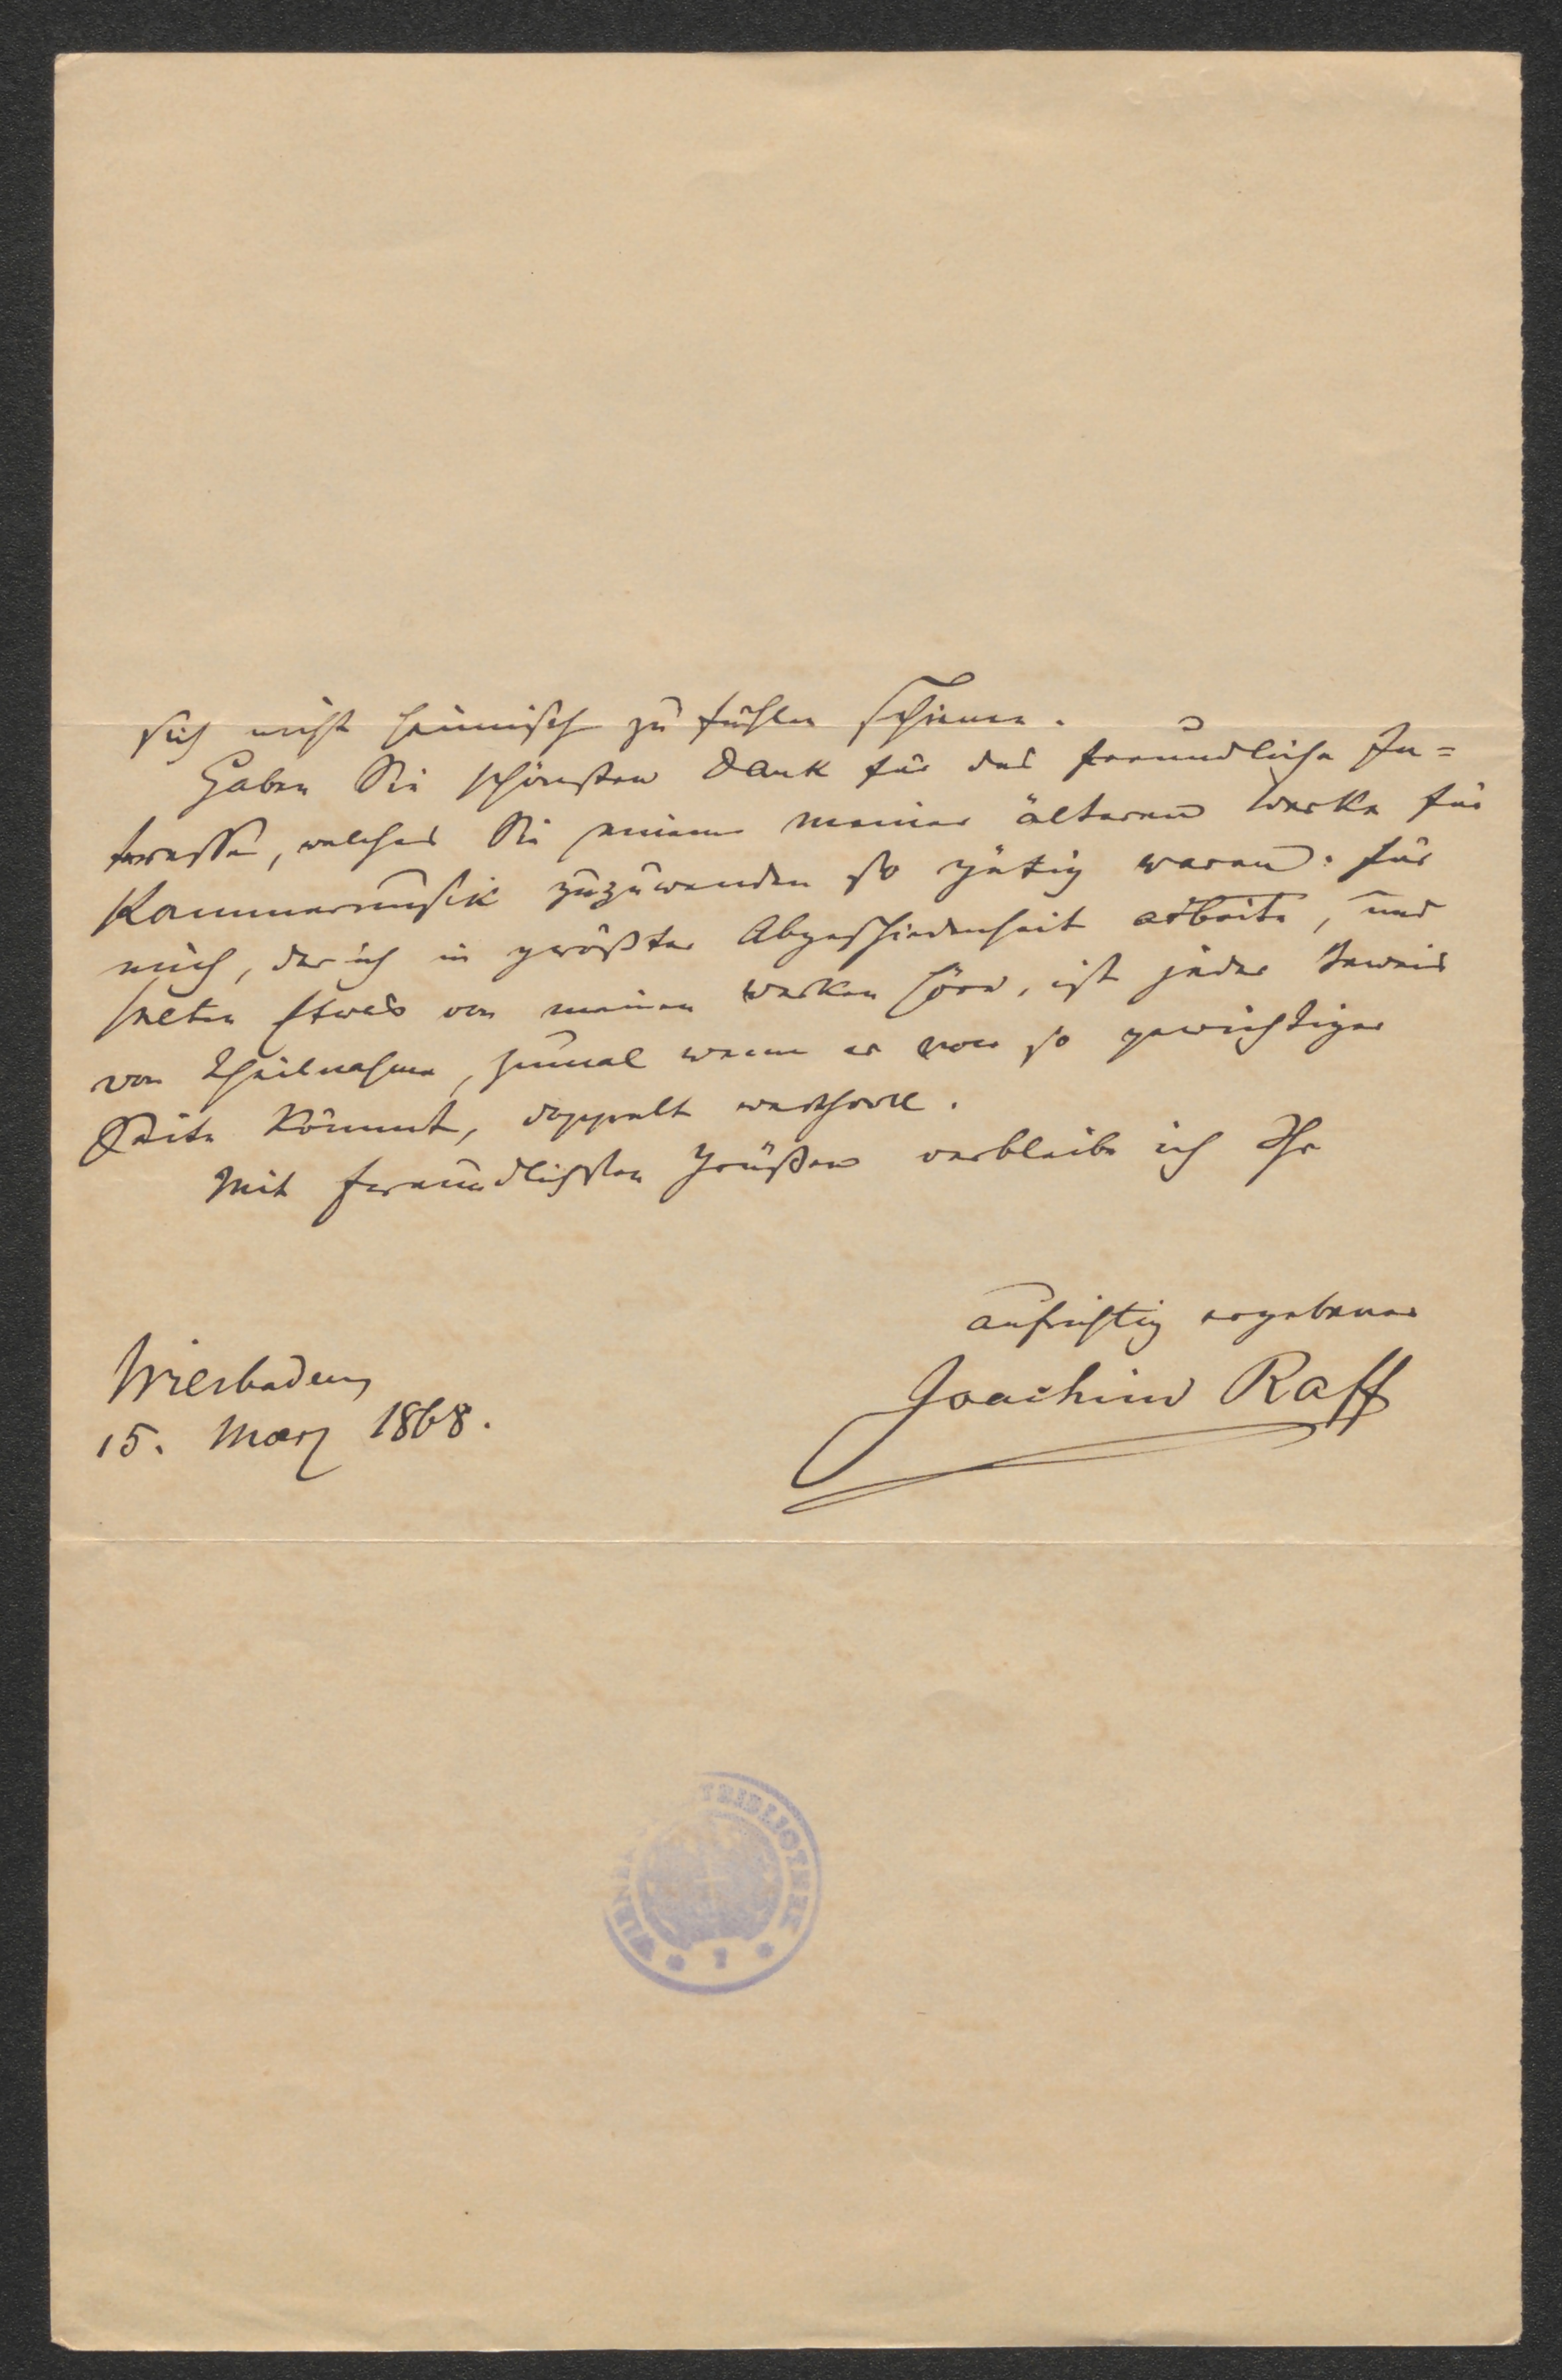 sich nicht heimisch zu fühlen schienen.
Haben Sie schönsten Dank für das freundliche In=
teresse, welches Sie einem meiner älteren Werke für
Kammermusik zuzuwenden so gütig waren. Für
mich, der ich in größter Abgeschiedenheit arbeite, und
selten Etwas von meinen Werken höre, ist jeder Beweis
von Theilnahme, zumal wenn er von so gewichtiger
Seite kömmt, doppelt werthvoll.
Mit freundlichsten Grüßen verbleibe ich Ihr
aufrichtig ergebener
Joachim Raff
Wiesbaden,
15. März 1868.